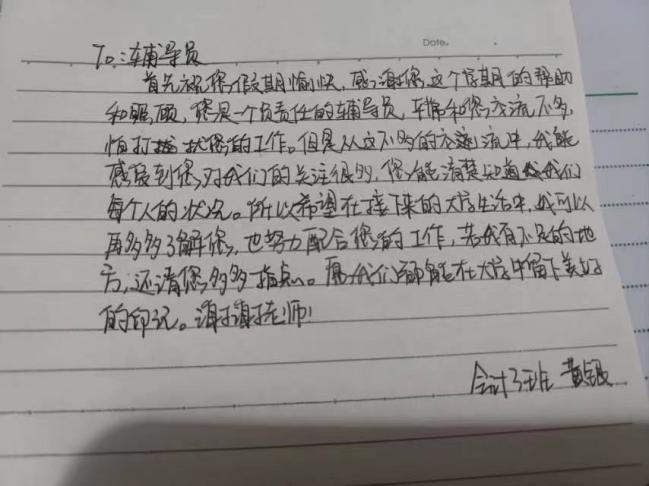 Date.
To:辅导员
首先祝您假期愉快,感谢您这个学期的帮助
和照顾,您是一个负责任的辅导员,平常和您交流不多,
怕打扰您的工作。但是从这不多的交流中,我能
感受到您对我们的关注很多,您能清楚知道我们
每个人的状况。所以希望在接下来的大学生活中,我可以
再多多了解您,也努力配合您的工作,若我有不足的地
方,还请您多多指点。愿我们都能在大学中留下美好
的印记。谢谢老师!
会计3班 黄银